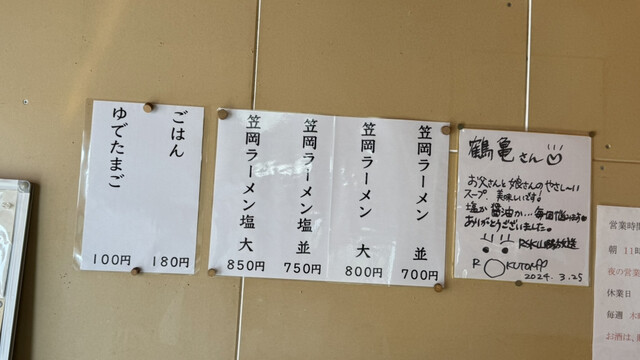 ごはん 180円
ゆでたまご 100円
笠岡ラーメン 並 700円
笠岡ラーメン 大 800円
笠岡ラーメン塩 並 750円
笠岡ラーメン塩 大 850円
鶴亀さん
お父さんと娘さんのやさし〜い
スープ、美味しいです。
塩か醤油か…毎回悩みます
ありがとうございました。
RSK山陽放送
2024. 3.25
営業時間
朝 11時
夜の営業
休業日
毎週 木
お酒は、